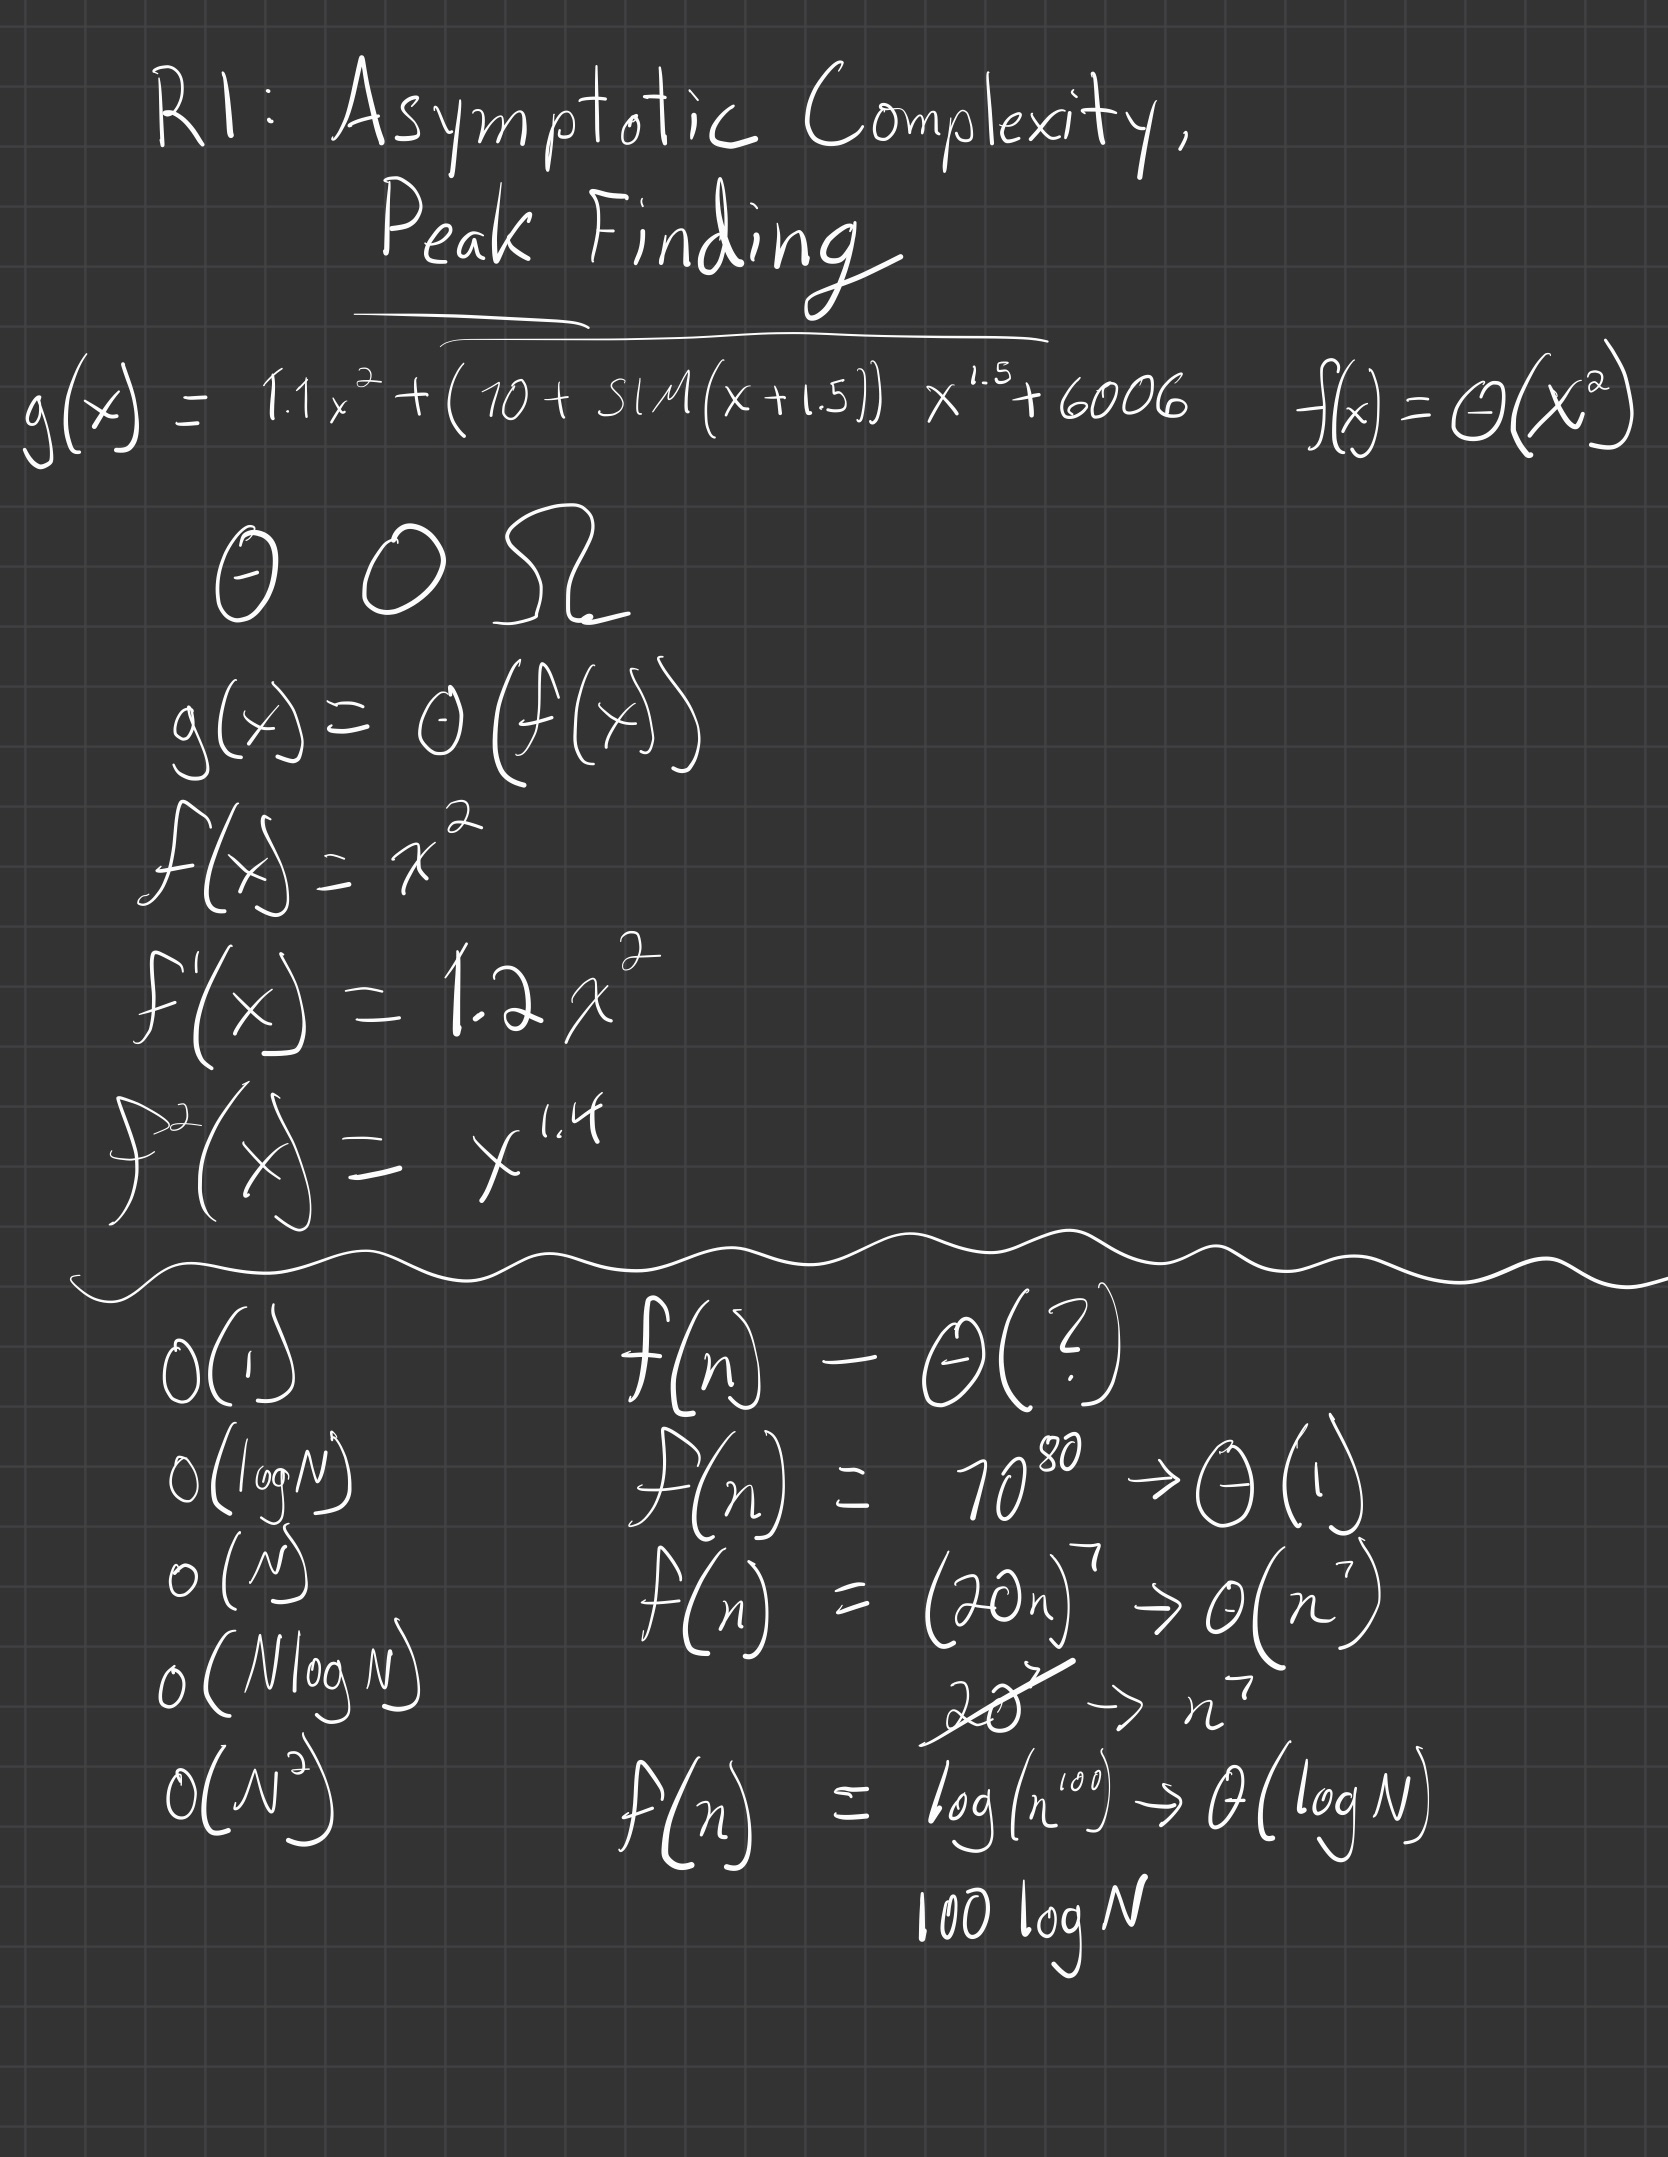 R1: Asymptotic Complexity,
Peak Finding
g(x) = 1.1x² + (10 + SIN(x+1.5)) x^1.5 + 6006 f(x) = Θ(x²)
Θ O Ω
g(x) = Θ(f(x))
f(x) = x²
f'(x) = 1.2x²
f²(x) = x^1.4
O(1)
O(logN)
O(N)
O(NlogN)
O(N²)
f(n) – Θ(?)
f(n) = 10^80 → Θ(1)
f(n) = (20n)^7 → Θ(n^7)
20^7 → n^7
f(n) = log(n^100) → Θ(log N)
100 log N